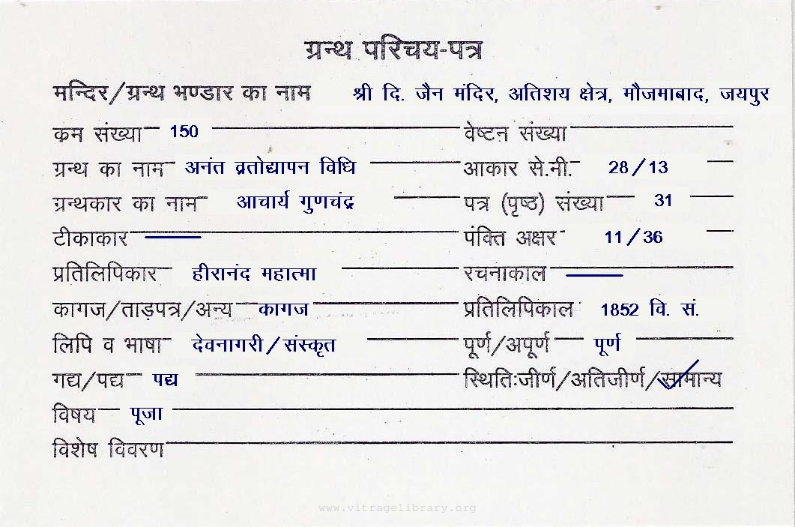 ग्रन्थ परिचय-पत्र
मन्दिर/ग्रन्थ भण्डार का नाम श्री दि. जैन मंदिर, अतिशय क्षेत्र, मौजमाबाद, जयपुर
क्रम संख्या 150 वेष्टन संख्या
ग्रन्थ का नाम अनंत व्रतोद्यापन विधि आकार से.मी. 28/13
ग्रन्थकार का नाम आचार्य गुणचंद्र पत्र (पृष्ठ) संख्या 31
टीकाकार पंक्ति अक्षर 11/36
प्रतिलिपिकार हीरानंद महात्मा रचनाकाल
कागज/ताड़पत्र/अन्य कागज प्रतिलिपिकाल 1852 वि. सं.
लिपि व भाषा देवनागरी/संस्कृत पूर्ण/अपूर्ण पूर्ण
गद्य/पद्य पद्य स्थितिःजीर्ण/अतिजीर्ण/सामान्य
विषय पूजा
विशेष विवरण
www.vitragelibrary.org